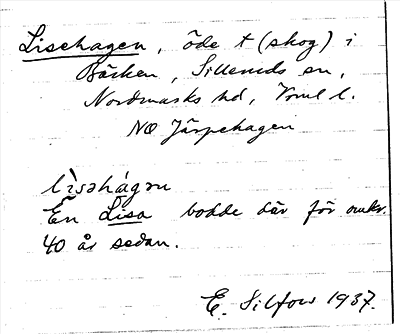 Lisehagen, öde t (skog) i
Bäcken, Silleruds sn,
Nordmarks hd, Vrml l.
NO Järpehagen
lìsəhágən
En Lisa bodde där för omkr.
40 år sedan.
E. Silfow 1937.